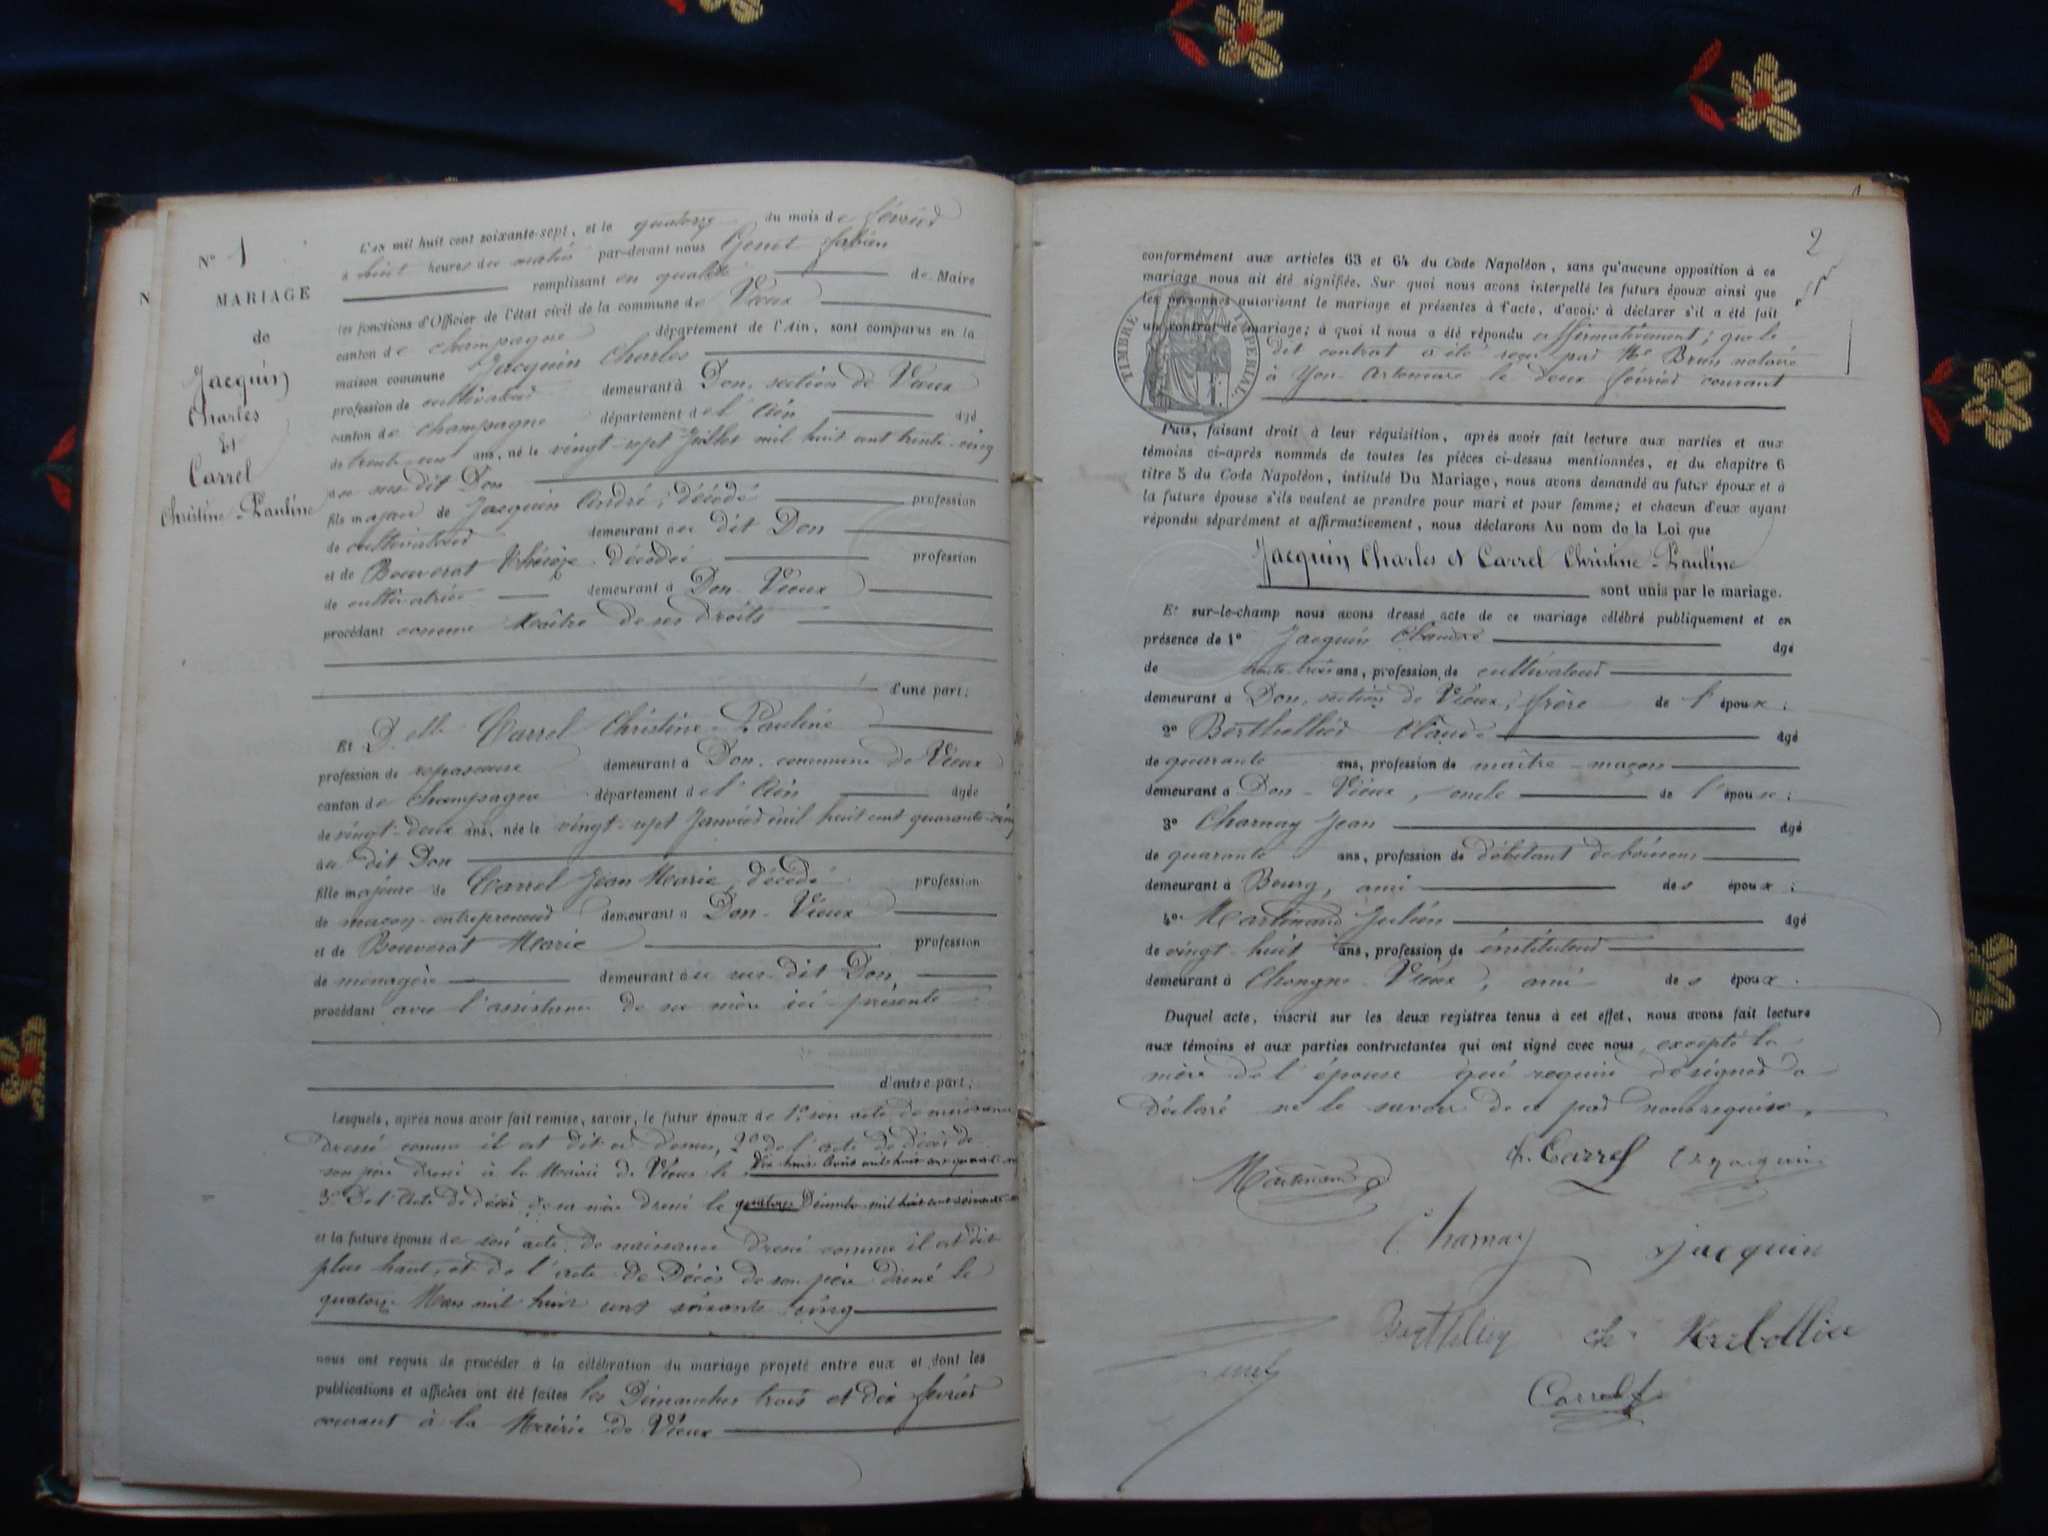 N° 1
MARIAGE
de
Jacquin
Charles
Et
Carrel
Christine-Pauline
L'an mil huit cent soixante-sept, et le quatorze du mois de février
à huit heures du matin par-devant nous Genet fabien
remplissant en qualité de Maire
les fonctions d'Officier de l'état civil de la commune de Vieux
canton de champagne département de l'Ain, sont comparus en la
maison commune Jacquin Charles
profession de cultivateur demeurant à Don, section de Vieux
canton de champagne département de l'Ain âgé
de trente-un ans, né le vingt-sept Juillet mil huit cent trente-cinq
au sus dit Don
fils majeur de Jacquin André, décédé profession
de cultivateur demeurant au dit Don
et de Bouverat Thérèze décédée profession
de cultivatrice demeurant à Don-Vieux
procédant comme Maître de ses droits
d'une part;
Et Delle Carrel Christine-Pauline
profession de repasseuse demeurant à Don, commune de Vieux
canton de champagne département de l'Ain âgée
de vingt-deux ans, née le vingt-sept Janvier mil huit cent quarante-cinq
au dit Don
fille majeure de Carrel Jean Marie, décédé profession
de maçon-entrepreneur demeurant à Don-Vieux
et de Bouverat Marie profession
de ménagère demeurant au sus-dit Don,
procédant avec l'assistance de sa mère ici-présente
d'autre part;
Lesquels, après nous avoir fait remise, savoir, le futur époux de 1° son acte de naissance
dressé comme il est dit ci dessus, 2° de l'acte de décès de
son père dressé à la Mairie de Vieux le
3° De l'Acte de décès de sa mère dressé le quatorze Décembre mil huit cent soixante
et la future épouse de son acte de naissance dressé comme il est dit
plus haut, et de l'acte de Décès de son père dressé le
quatorze Mars mil huit cent soixante-cinq
nous ont requis de procéder à la célébration du mariage projeté entre eux et dont les
publications et affiches ont été faites les Dimanches trois et dix février
courant à la Mairie de Vieux
2
conformément aux articles 63 et 64 du Code Napoléon, sans qu'aucune opposition à ce
mariage nous ait été signifiée. Sur quoi nous avons interpellé les futurs époux ainsi que
les personnes autorisant le mariage et présentes à l'acte, d'avoir à déclarer s'il a été fait
un contrat de mariage; à quoi il nous a été répondu affirmativement; que le
dit contrat a été reçu par Me Brun notaire
à Yon-Artemare le deux février courant
TIMBRE IMPERIAL
Puis, faisant droit à leur réquisition, après avoir fait lecture aux parties et aux
témoins ci-après nommés de toutes les pièces ci-dessus mentionnées, et du chapitre 6
titre 5 du Code Napoléon, intitulé Du Mariage, nous avons demandé au futur époux et à
la future épouse s'ils veulent se prendre pour mari et pour femme; et chacun d'eux ayant
répondu séparément et affirmativement, nous déclarons Au nom de la Loi que
Jacquin Charles et Carrel Christine-Pauline
sont unis par le mariage.
Et sur-le-champ nous avons dressé acte de ce mariage célébré publiquement et en
présence de 1° Jacquin âgé
de trente-trois ans, profession de cultivateur
demeurant à Don, section de Vieux, frère de l'époux;
2° Berthellier Claude âgé
de quarante ans, profession de maître-maçon
demeurant à Don-Vieux, oncle de l'épouse;
3° Charnay Jean âgé
de quarante ans, profession de débitant de boisson
demeurant à Bourg, ami des époux;
4° Martinand Julien âgé
de vingt-huit ans, profession de instituteur
demeurant à Chongne-Vieux, ami des époux.
Duquel acte, inscrit sur les deux registres tenus à cet effet, nous avons fait lecture
aux témoins et aux parties contractantes qui ont signé avec nous, excepté la
mère de l'épouse qui requise de signer a
déclaré ne le savoir de ce par nous requise.
Carrel
Martinand
Charnay
Jacquin
Genet
Carrel